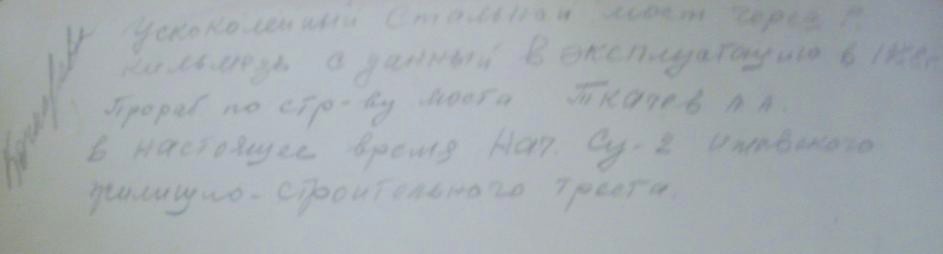 Узкоколейный стальной мост через р.
Кильмезь сданный в эксплуатацию в
Прораб по стр-ву моста Ткачев А.А.
в настоящее время Нач. Су-2 Ижевского
жилищно-строительного треста.